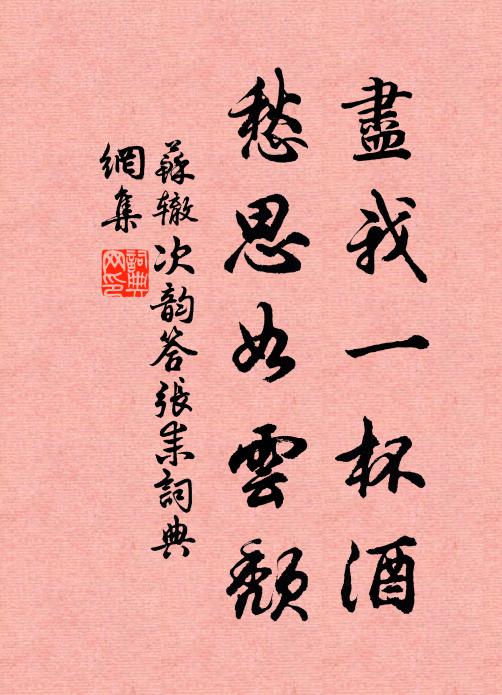 盡我一杯酒
愁思如雲頹
蘇轍次韵答張耒詞典
網集
詞典
网印